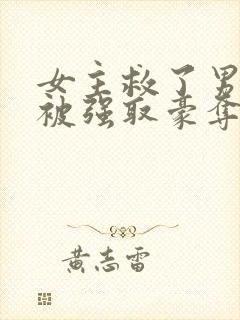 女主救了男
被强取豪夺
黄志雷